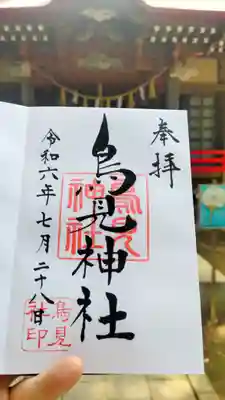 奉拝
鳥見神社
鳥見神社
令和六年七月二十八日
鳥見社印